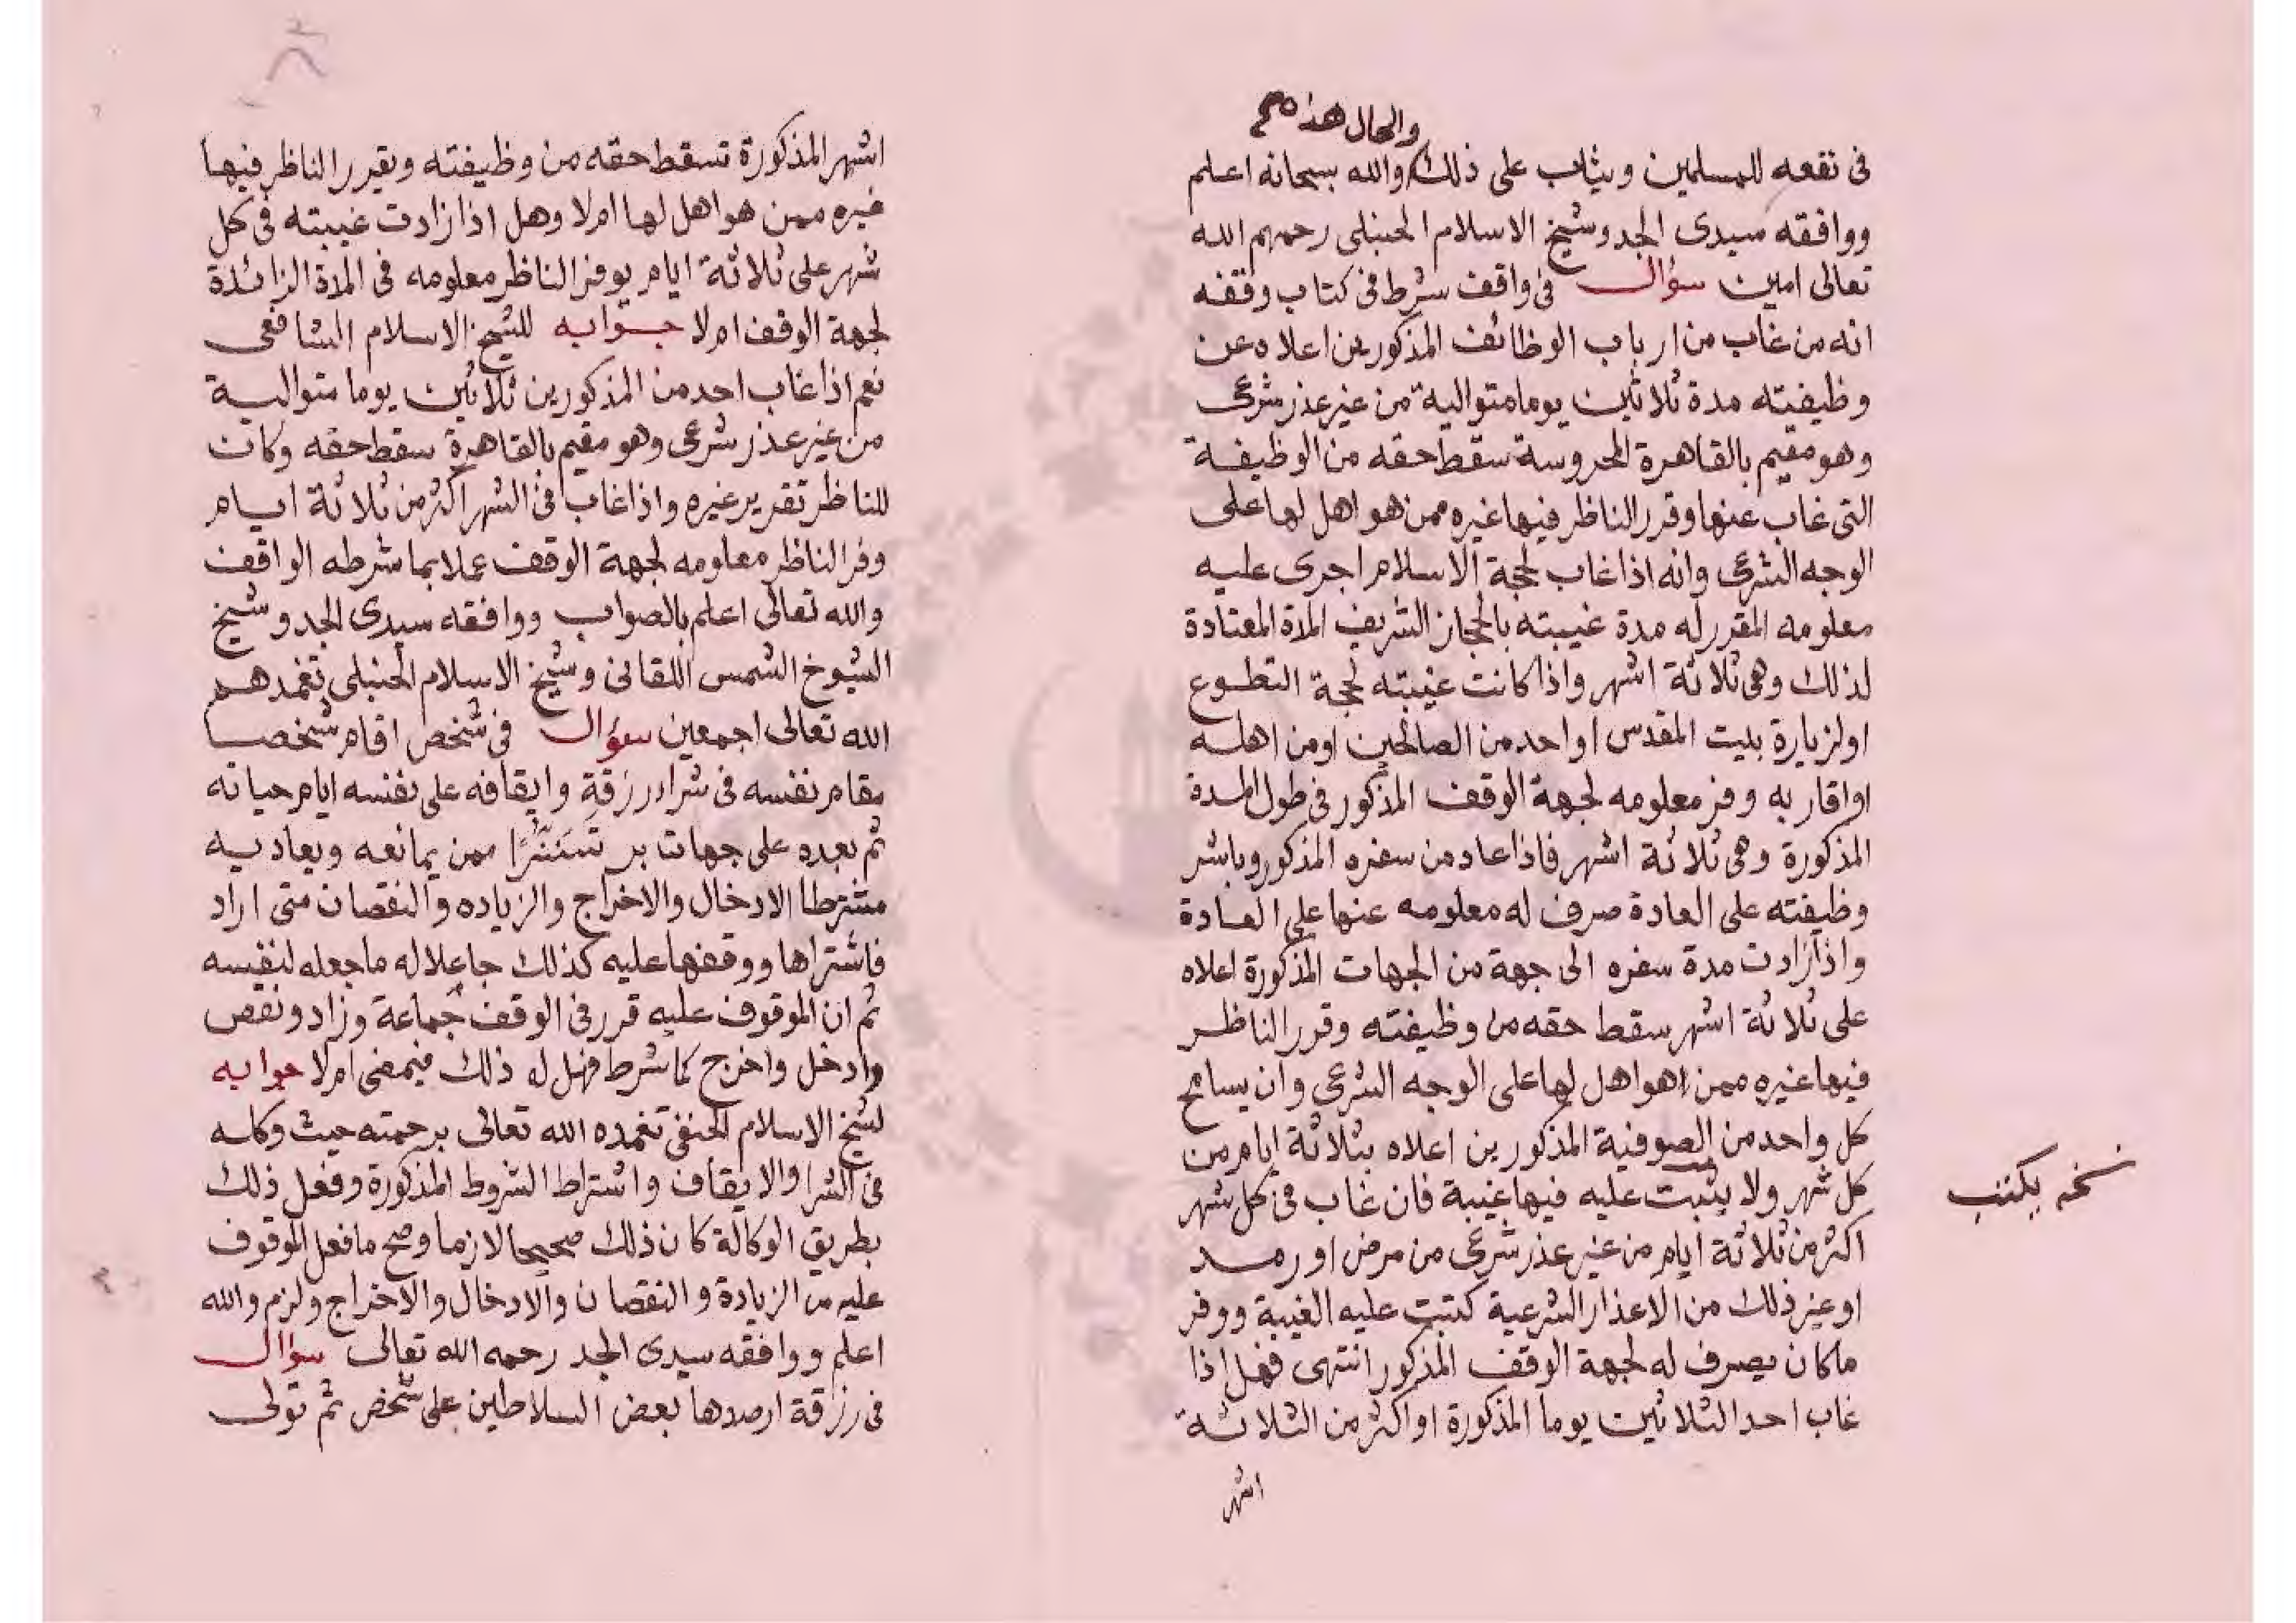 والحال هذه صح
فى نفعه للمسلمين ويثاب على ذلك والله سبحانه اعلم
ووافقه سيدى الجد وشيخ الاسلام الحنبلى رحمهم الله
تعالى امين سؤال فى واقف شرط فى كتاب وقفه
انه من غاب من ارباب الوظائف المذكورين اعلاه عن
وظيفيته مدة ثلاثين يوما متوالية من غير عذر شرعى
وهو مقيم بالقاهرة المحروسة سقط حقه من الوظيفة
التى غاب عنها وقرر الناظر فيها غيره ممن هو اهل لها على
الوجه الشرعى وانه اذا غاب لحجة الاسلام اجرى عليه
معلومه المقرر له مدة غيبته بالحجاز الشريف المدة المعتادة
لذلك وهى ثلاثة اشهر واذا كانت غيبته لحجة التطوع
او لزيارة بيت المقدس او احد من الصالحين او من اهله
او اقاربه وفر معلومه لجهة الوقف المذكور فى طول المدة
المذكورة وهى ثلاثة اشهر فاذا عاد من سفره المذكور وباشر
وظيفته على العادة صرف له معلومه عنها على العادة
واذا زادت مدة سفره الى جهة من الجهات المذكورة اعلاه
على ثلاثة اشهر سقط حقه من وظيفته وقرر الناظر
فيها غيره ممن هو اهل لها على الوجه الشرعى وان يسامح
كل واحد من الصوفية المذكورين اعلاه بثلاثة ايام من
كل شهر ولا يثبت عليه فيها غيبة فان غاب فى كل شهر
نسخه يكتب
اكثر من ثلاثة ايام من غير عذر شرعى من مرض او رمد
او غير ذلك من الاعذار الشرعية كتبت عليه الغيبة ووفر
ما كان يصرف له لجهة الوقف المذكور انتهى فهل اذا
غاب احد الثلاثين يوما المذكورة او اكثر من الثلاثة
اشهر
اشهر المذكورة تسقط حقه من وظيفته ويقرر الناظر فيها
غيره ممن هو اهل لها ام لا وهل اذا زادت غيبته فى كل
شهر على ثلاثة ايام يوفر الناظر معلومه فى المدة الزائدة
لجهة الوقف ام لا جوابه للشيخ الاسلام الشافعى
نعم اذا غاب احد من المذكورين ثلاثين يوما متوالية
من غير عذر شرعى وهو مقيم بالقاهرة سقط حقه وكان
للناظر تقرير غيره واذا غاب فى الشهر اكثر من ثلاثة ايام
وفر الناظر معلومه لجهة الوقف عملا بما شرطه الواقف
والله تعالى اعلم بالصواب ووافقه سيدى الجد وشيخ
الشيوخ الشمس اللقانى وشيخ الاسلام الحنبلى تغمدهم
الله تعالى اجمعين سؤال فى شخص اقام شخصا
مقام نفسه فى شراء رزقة وايقافه على نفسه ايام حياته
ثم بعده على جهات بر تَسَتُّرًا ممن يمانعه ويعاديه
مشترطا الادخال والاخراج والزياده والنقصان متى اراد
فاشتراها ووقفها عليه كذلك جاعلا له ما جعله لنفسه
ثم ان الموقوف عليه قرر فى الوقف جماعة وزاد ونقص
وادخل واخرج كما شرط فهل له ذلك فيمضى ام لا جوابه
لشيخ الاسلام الحنفى تغمده الله تعالى برحمته حيث وكله
فى الشرا والايقاف واشتراط الشروط المذكورة وفعل ذلك
بطريق الوكالة كان ذلك صحيحا لازما وصح ما فعل الموقوف
عليه من الزيادة والنقصان والادخال والاخراج ولزم والله
اعلم ووافقه سيدى الجد رحمه الله تعالى سؤال
فى رزقة ارصدها بعض السلاطين على شخص ثم تولى